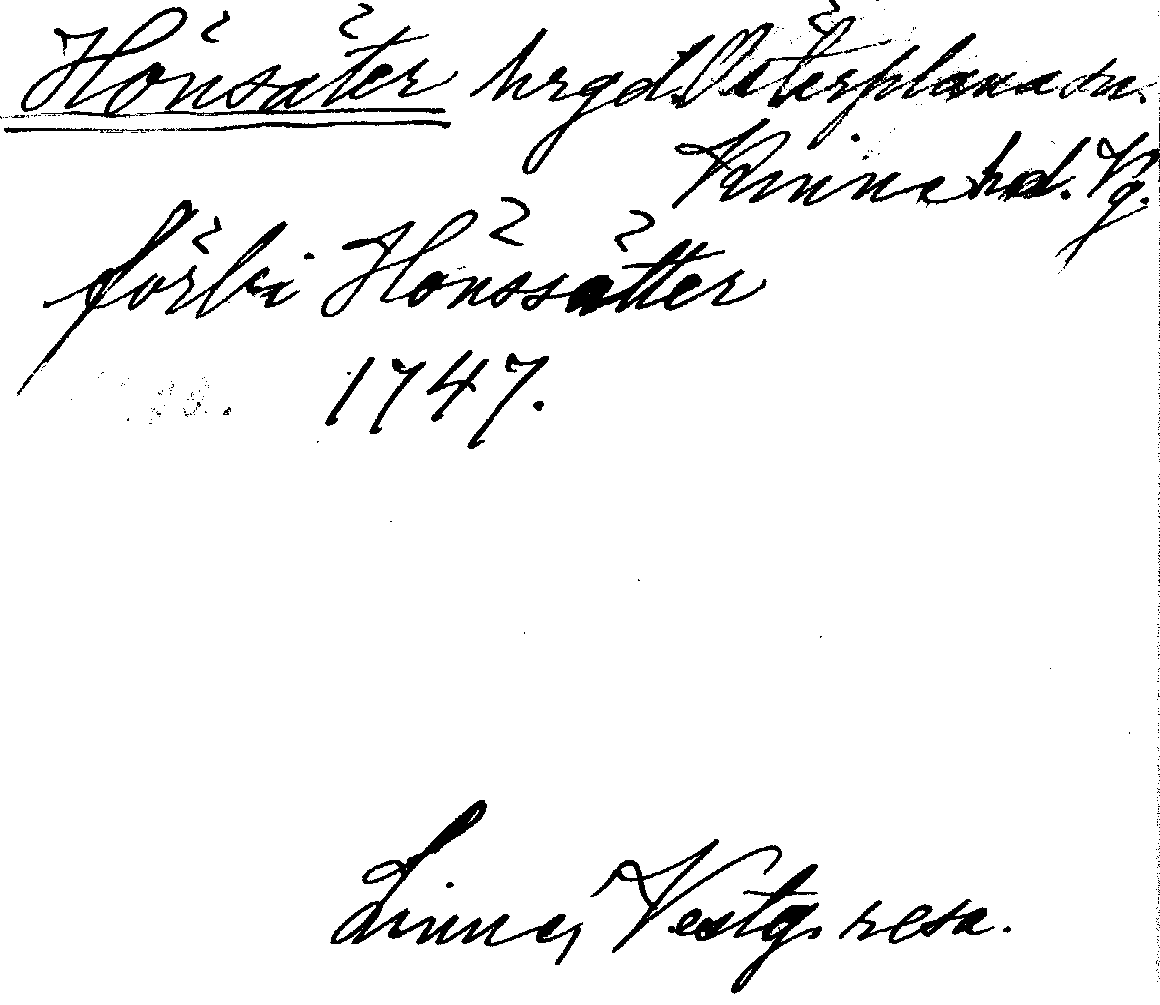 Hönsäter hrgd. Österplana sn.
Kinne hd. Vg.
förbi Hönssätter
1747.
Linne, Vestg. resa.